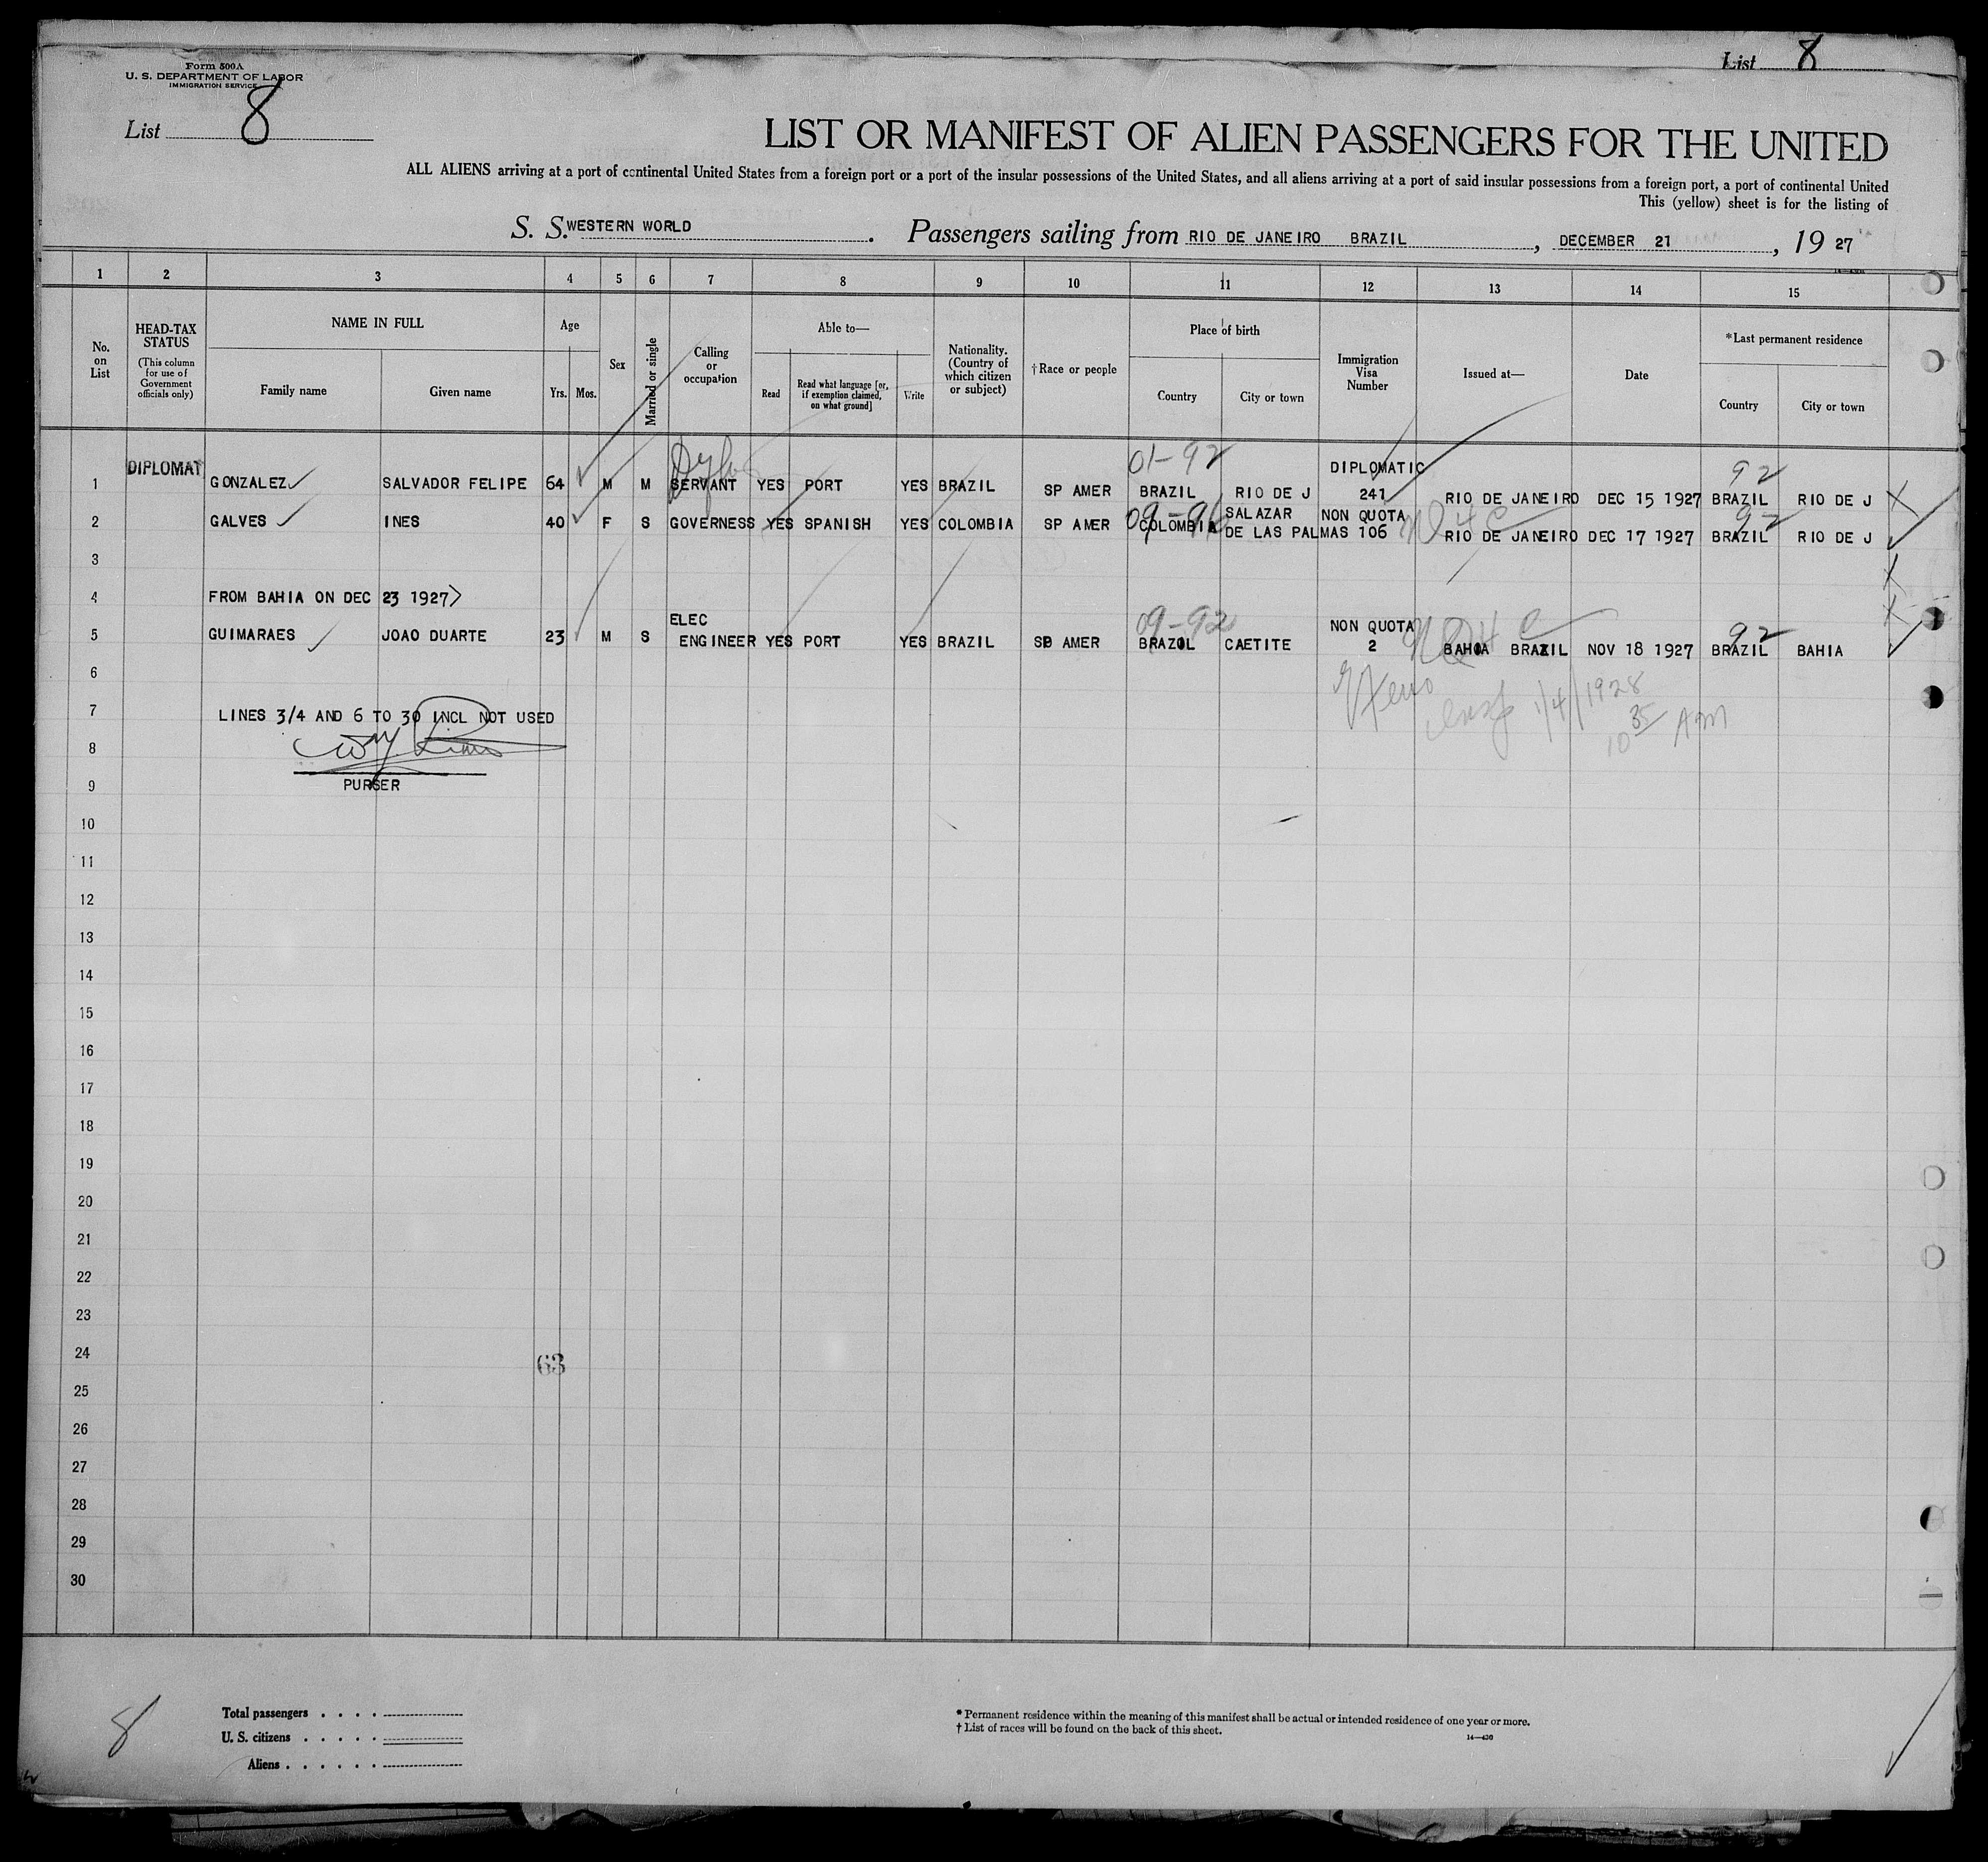 Form 500A
U. S. DEPARTMENT OF LABOR
IMMIGRATION SERVICE
List 8
List 8
LIST OR MANIFEST OF ALIEN PASSENGERS FOR THE UNITED
ALL ALIENS arriving at a port of continental United States from a foreign port or a port of the insular possessions of the United States, and all aliens arriving at a port of said insular possessions from a foreign port, a port of continental United
This (yellow) sheet is for the listing of
S. S. WESTERN WORLD . Passengers sailing from RIO DE JANEIRO BRAZIL , DECEMBER 21 , 19 27
1 2 3 4 5 6 7 8 9 10 11 12 13 14 15
No. on List
HEAD-TAX STATUS (This column for use of Government officials only)
NAME IN FULL
Family name Given name
Age
Yrs. Mos.
Sex
Married or single
Calling or occupation
Able to—
Read
Read what language [or, if exemption claimed, on what ground]
Write
Nationality. (Country of which citizen or subject)
†Race or people
Place of birth
Country City or town
Immigration Visa Number
Issued at—
Date
*Last permanent residence
Country City or town
01-92 DIPLOMATIC 92
1 DIPLOMAT GONZALEZ SALVADOR FELIPE 64 M M SERVANT YES PORT YES BRAZIL SP AMER BRAZIL RIO DE J 241 RIO DE JANEIRO DEC 15 1927 BRAZIL RIO DE J
09-96 SALAZAR NON QUOTA 92
2 GALVES INES 40 F S GOVERNESS YES SPANISH YES COLOMBIA SP AMER COLOMBIA DE LAS PALMAS 106 RIO DE JANEIRO DEC 17 1927 BRAZIL RIO DE J
3
4 FROM BAHIA ON DEC 23 1927
ELEC 09-92 NON QUOTA 92
5 GUIMARAES JOAO DUARTE 23 M S ENGINEER YES PORT YES BRAZIL SP AMER BRAZIL CAETITE 2 BAHIA BRAZIL NOV 18 1927 BRAZIL BAHIA
6
1/4/1928
7 LINES 3/4 AND 6 TO 30 INCL NOT USED
10 35 AM
8
9 PURSER
10
11
12
13
14
15
16
17
18
19
20
21
22
23
24
63
25
26
27
28
29
30
8
Total passengers . . . .
U. S. citizens . . . . .
Aliens . . . . . .
* Permanent residence within the meaning of this manifest shall be actual or intended residence of one year or more.
† List of races will be found on the back of this sheet.
14—430